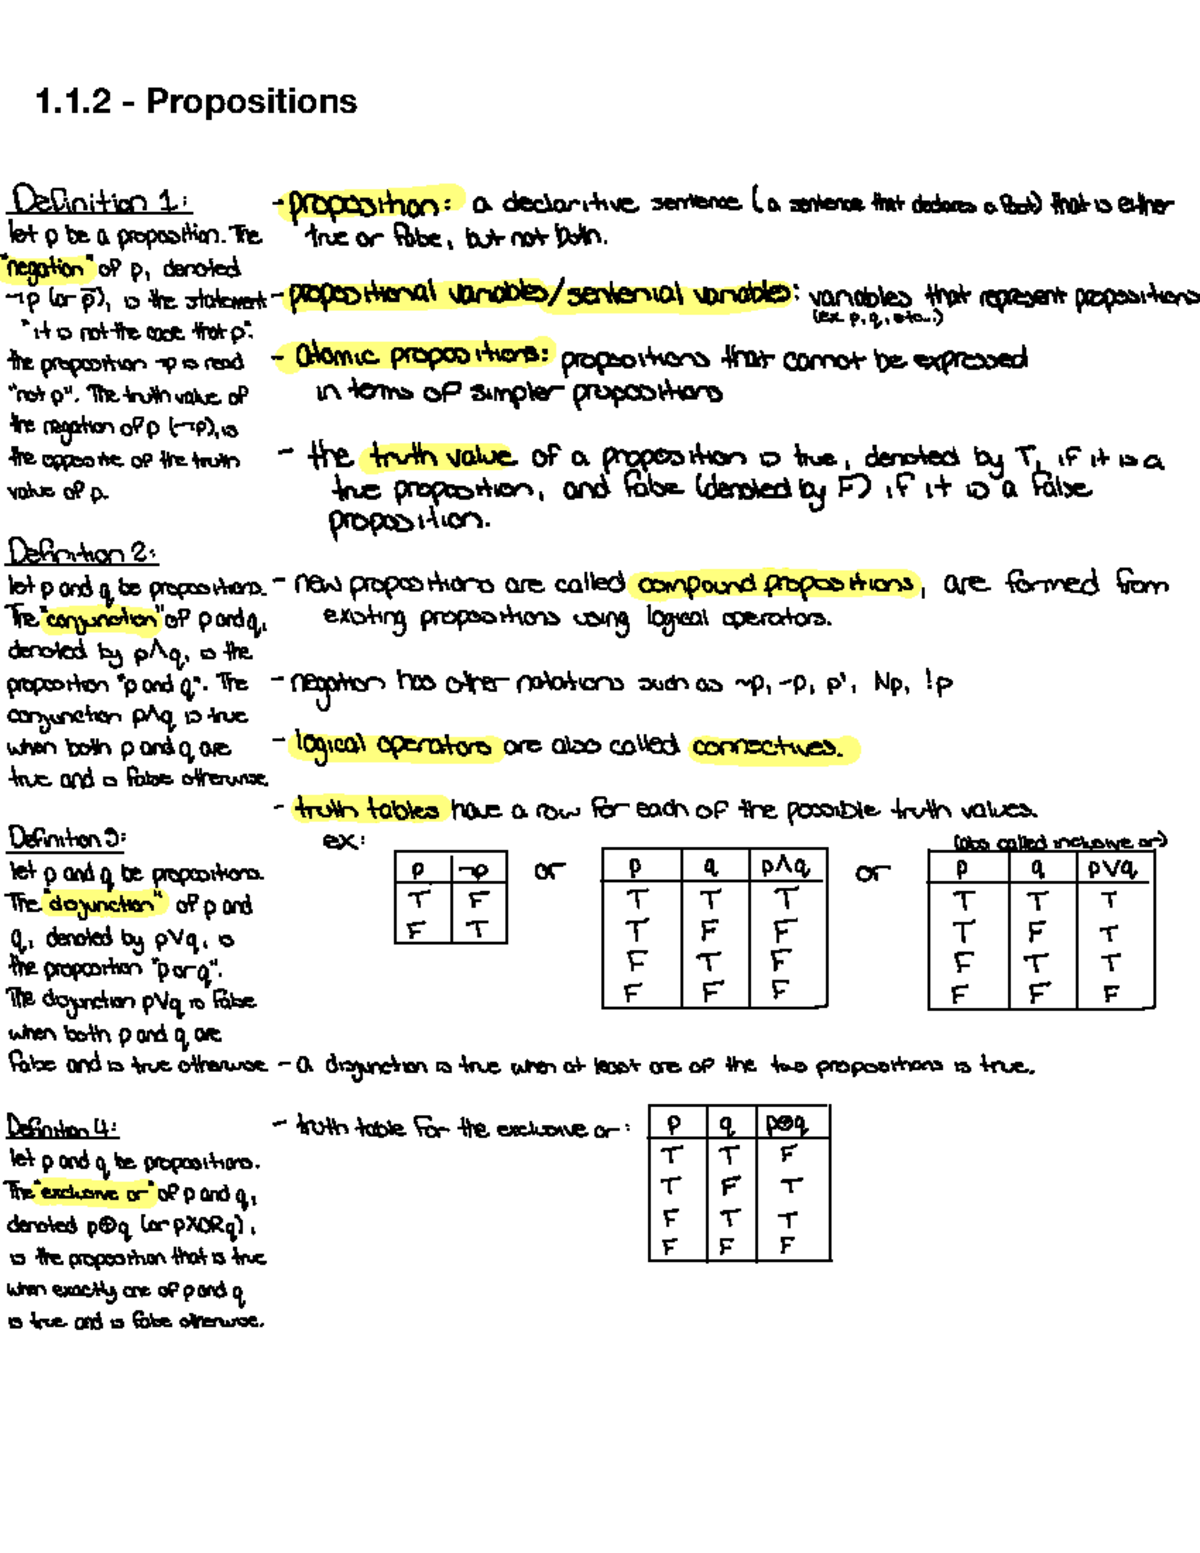 1.1.2 - Propositions
Definition 1:
let p be a proposition. The
"negation" of p, denoted
¬p (or p̅), is the statement
"it is not the case that p".
the proposition ¬p is read
"not p". The truth value of
the negation of p (¬p), is
the opposite of the truth
value of p.
Definition 2:
let p and q be propositions.
The "conjunction" of p and q,
denoted by p∧q, is the
proposition "p and q". The
conjunction p∧q is true
when both p and q are
true and is false otherwise.
Definition 3:
let p and q be propositions.
The "disjunction" of p and
q, denoted by p∨q, is
the proposition "p or q".
The disjunction p∨q is false
when both p and q are
false and is true otherwise
Definition 4:
let p and q be propositions.
The "exclusive or" of p and q,
denoted p⊕q (or pXORq),
is the proposition that is true
when exactly one of p and q
is true and is false otherwise.
- proposition: a declaritive sentence (a sentence that declares a fact) that is either
true or false, but not both.
- propositional variables/sentenial variables: variables that represent propositions
(ex. p, q, etc...)
- atomic propositions: propositions that cannot be expressed
in terms of simpler propositions
- the truth value of a proposition is true, denoted by T, if it is a
true proposition, and false (denoted by F) if it is a false
proposition.
- new propositions are called compound propositions, are formed from
existing propositions using logical operators.
- negation has other notations such as ~p, -p, p', Np, !p
- logical operators are also called connectives.
- truth tables have a row for each of the possible truth values.
ex:
p ¬p
T F
F T
or
p q p∧q
T T T
T F F
F T F
F F F
or
(also called inclusive or)
p q p∨q
T T T
T F T
F T T
F F F
- a disjunction is true when at least one of the two propositions is true.
- truth table for the exclusive or:
p q p⊕q
T T F
T F T
F T T
F F F